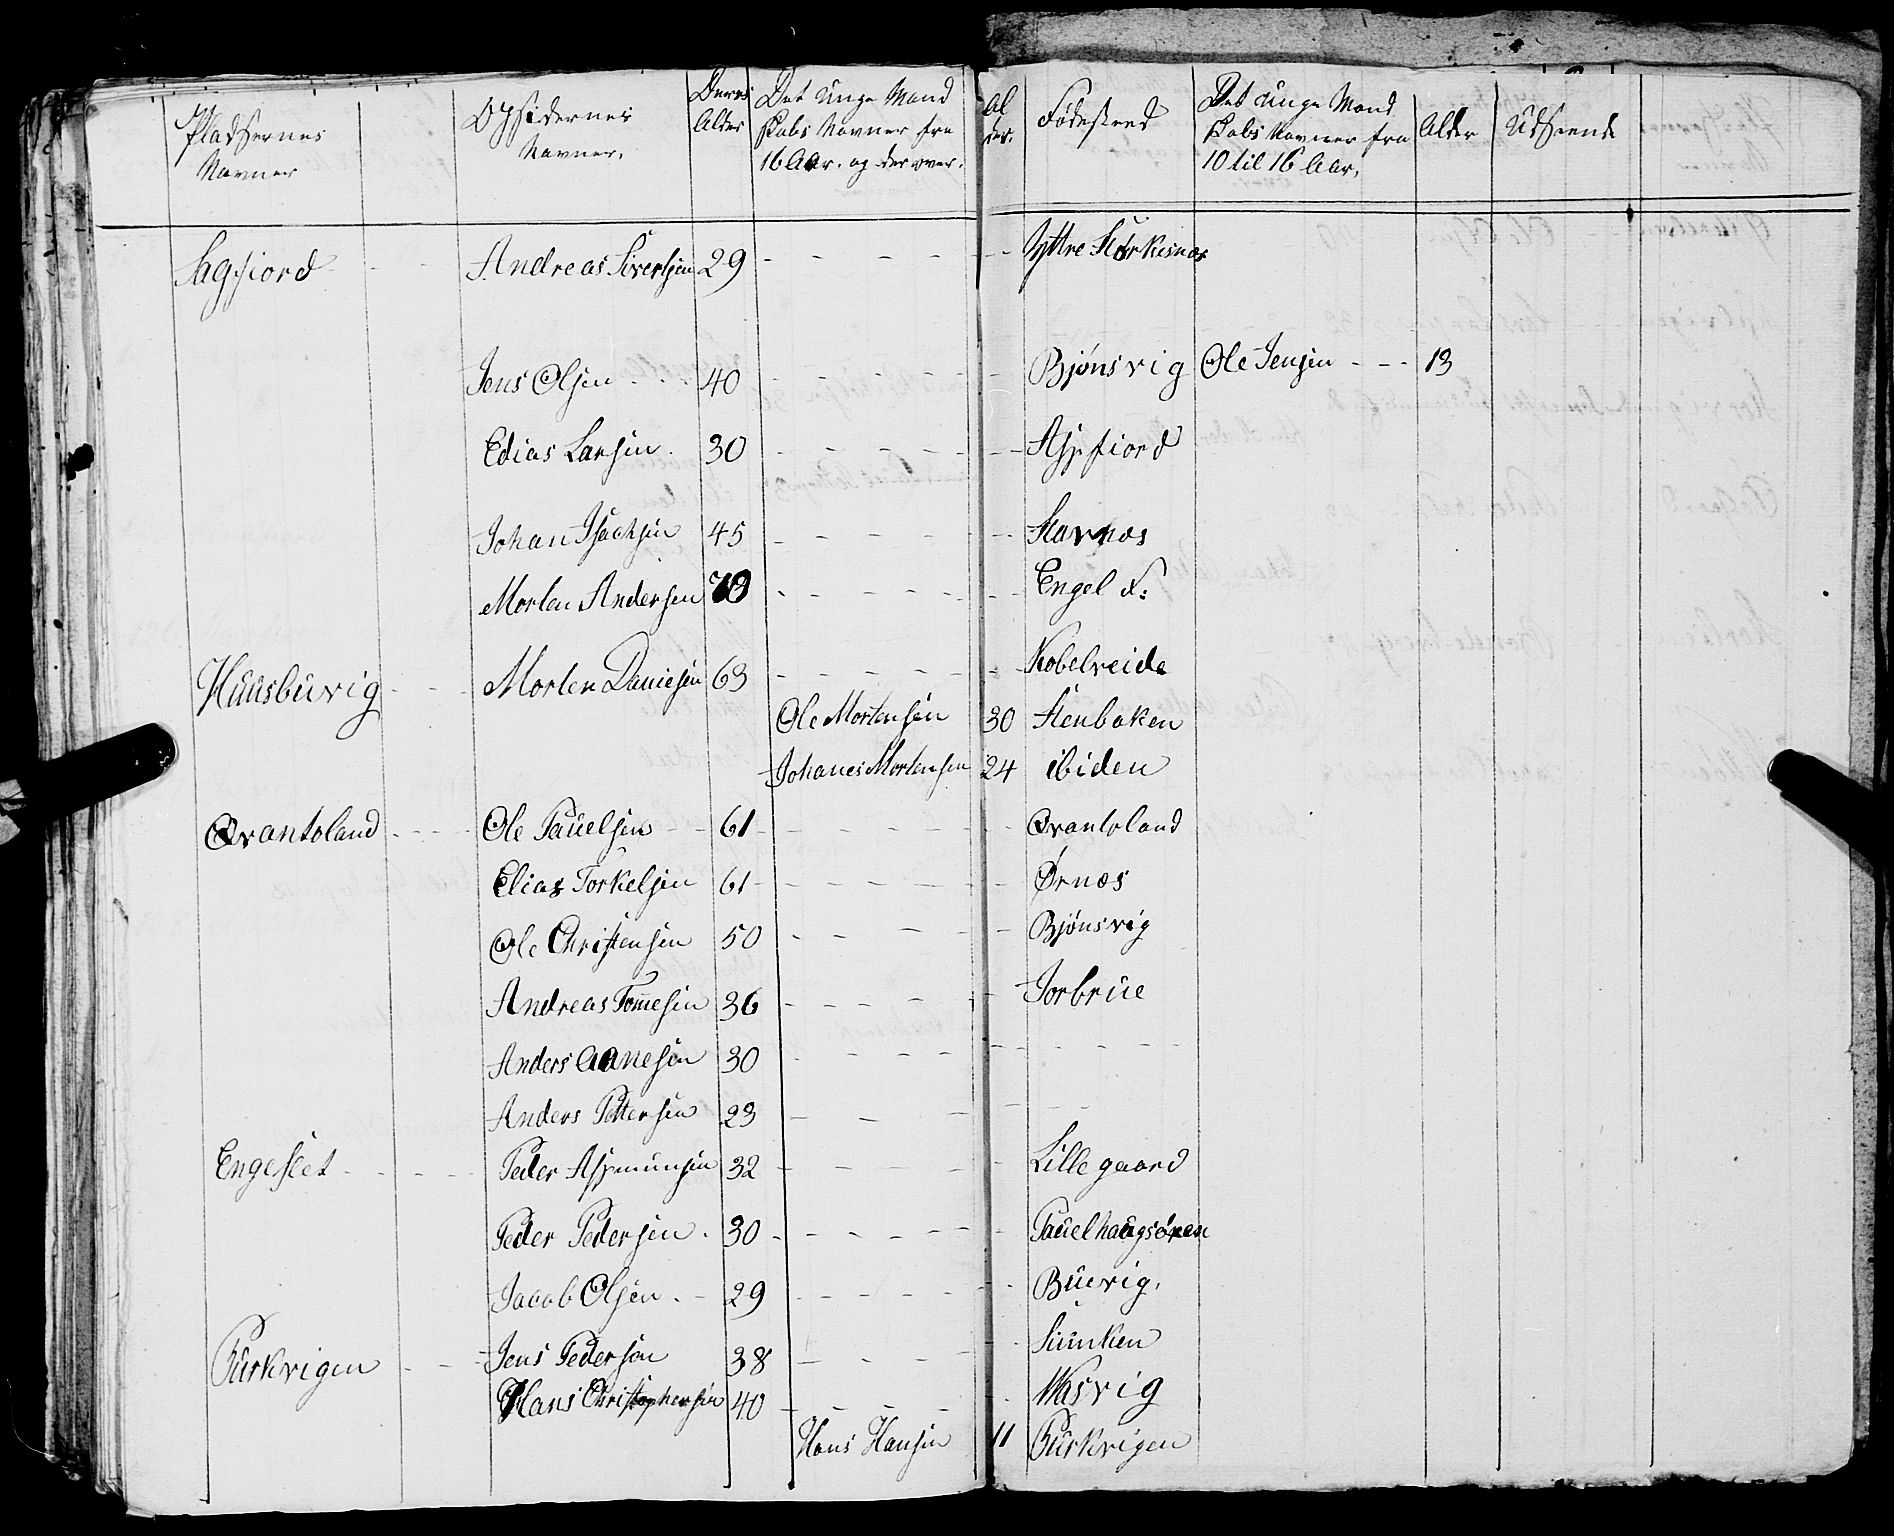 Pladsernes Navner
Opsidernes Navner.
Deres Alder
Det unge Mandskabs Navner fra 16 Aar. og der over.
Alder.
Fødesteed
Det unge Mandskabs Navner fra 10 til 16 Aar.
Alder
Udseende
Sagfiord - - Andreas Sivertsen 29 - - - - - - Yttre Storkesnæs
Jens Olsen - - - 40 - - - - - - Bjønsvig Ole Jensen - - - 13
Edias Larsen. 30 - - - - - - Aspfiord
Johan Isachsen 45 - - - - - - Stavnæs
Morten Andersen 70 - - - - - - Engel d:
Huusbuvig - - - Morten Daniesen 63 - - - - - - Kobelveide
Ole Mortensen 30 Stenbaken
Johanes Mortensen 24 ibiden
Qvantoland - - - Ole Pauelsen - - 61 - - - - - - Qvantoland
Elias Torkelsen 61 - - - - - - Ørnæs
Ole Christensen 50 - - - - - Bjønsvig
Andreas Tomesen 36 - - - - - - Jorbrue
Anders Aanesen 30 - - - - - - - - - -
Anders Pettersen 23 - - - - - -
Engeslet - - - - Peder Aspmunsen 32 - - - - - - Lillegaard
Peder Pedersen . 30 - - - - - - Pauelhaugsøren
Jacob Olsen . - 29 - - - - - - Buevig.
Purkvigen - - Jens Pedersen 38 - - - - - Siunken
Hans Christophersen 40 - - - - - Wasvig
Hans Hansen 11 Purkvigen